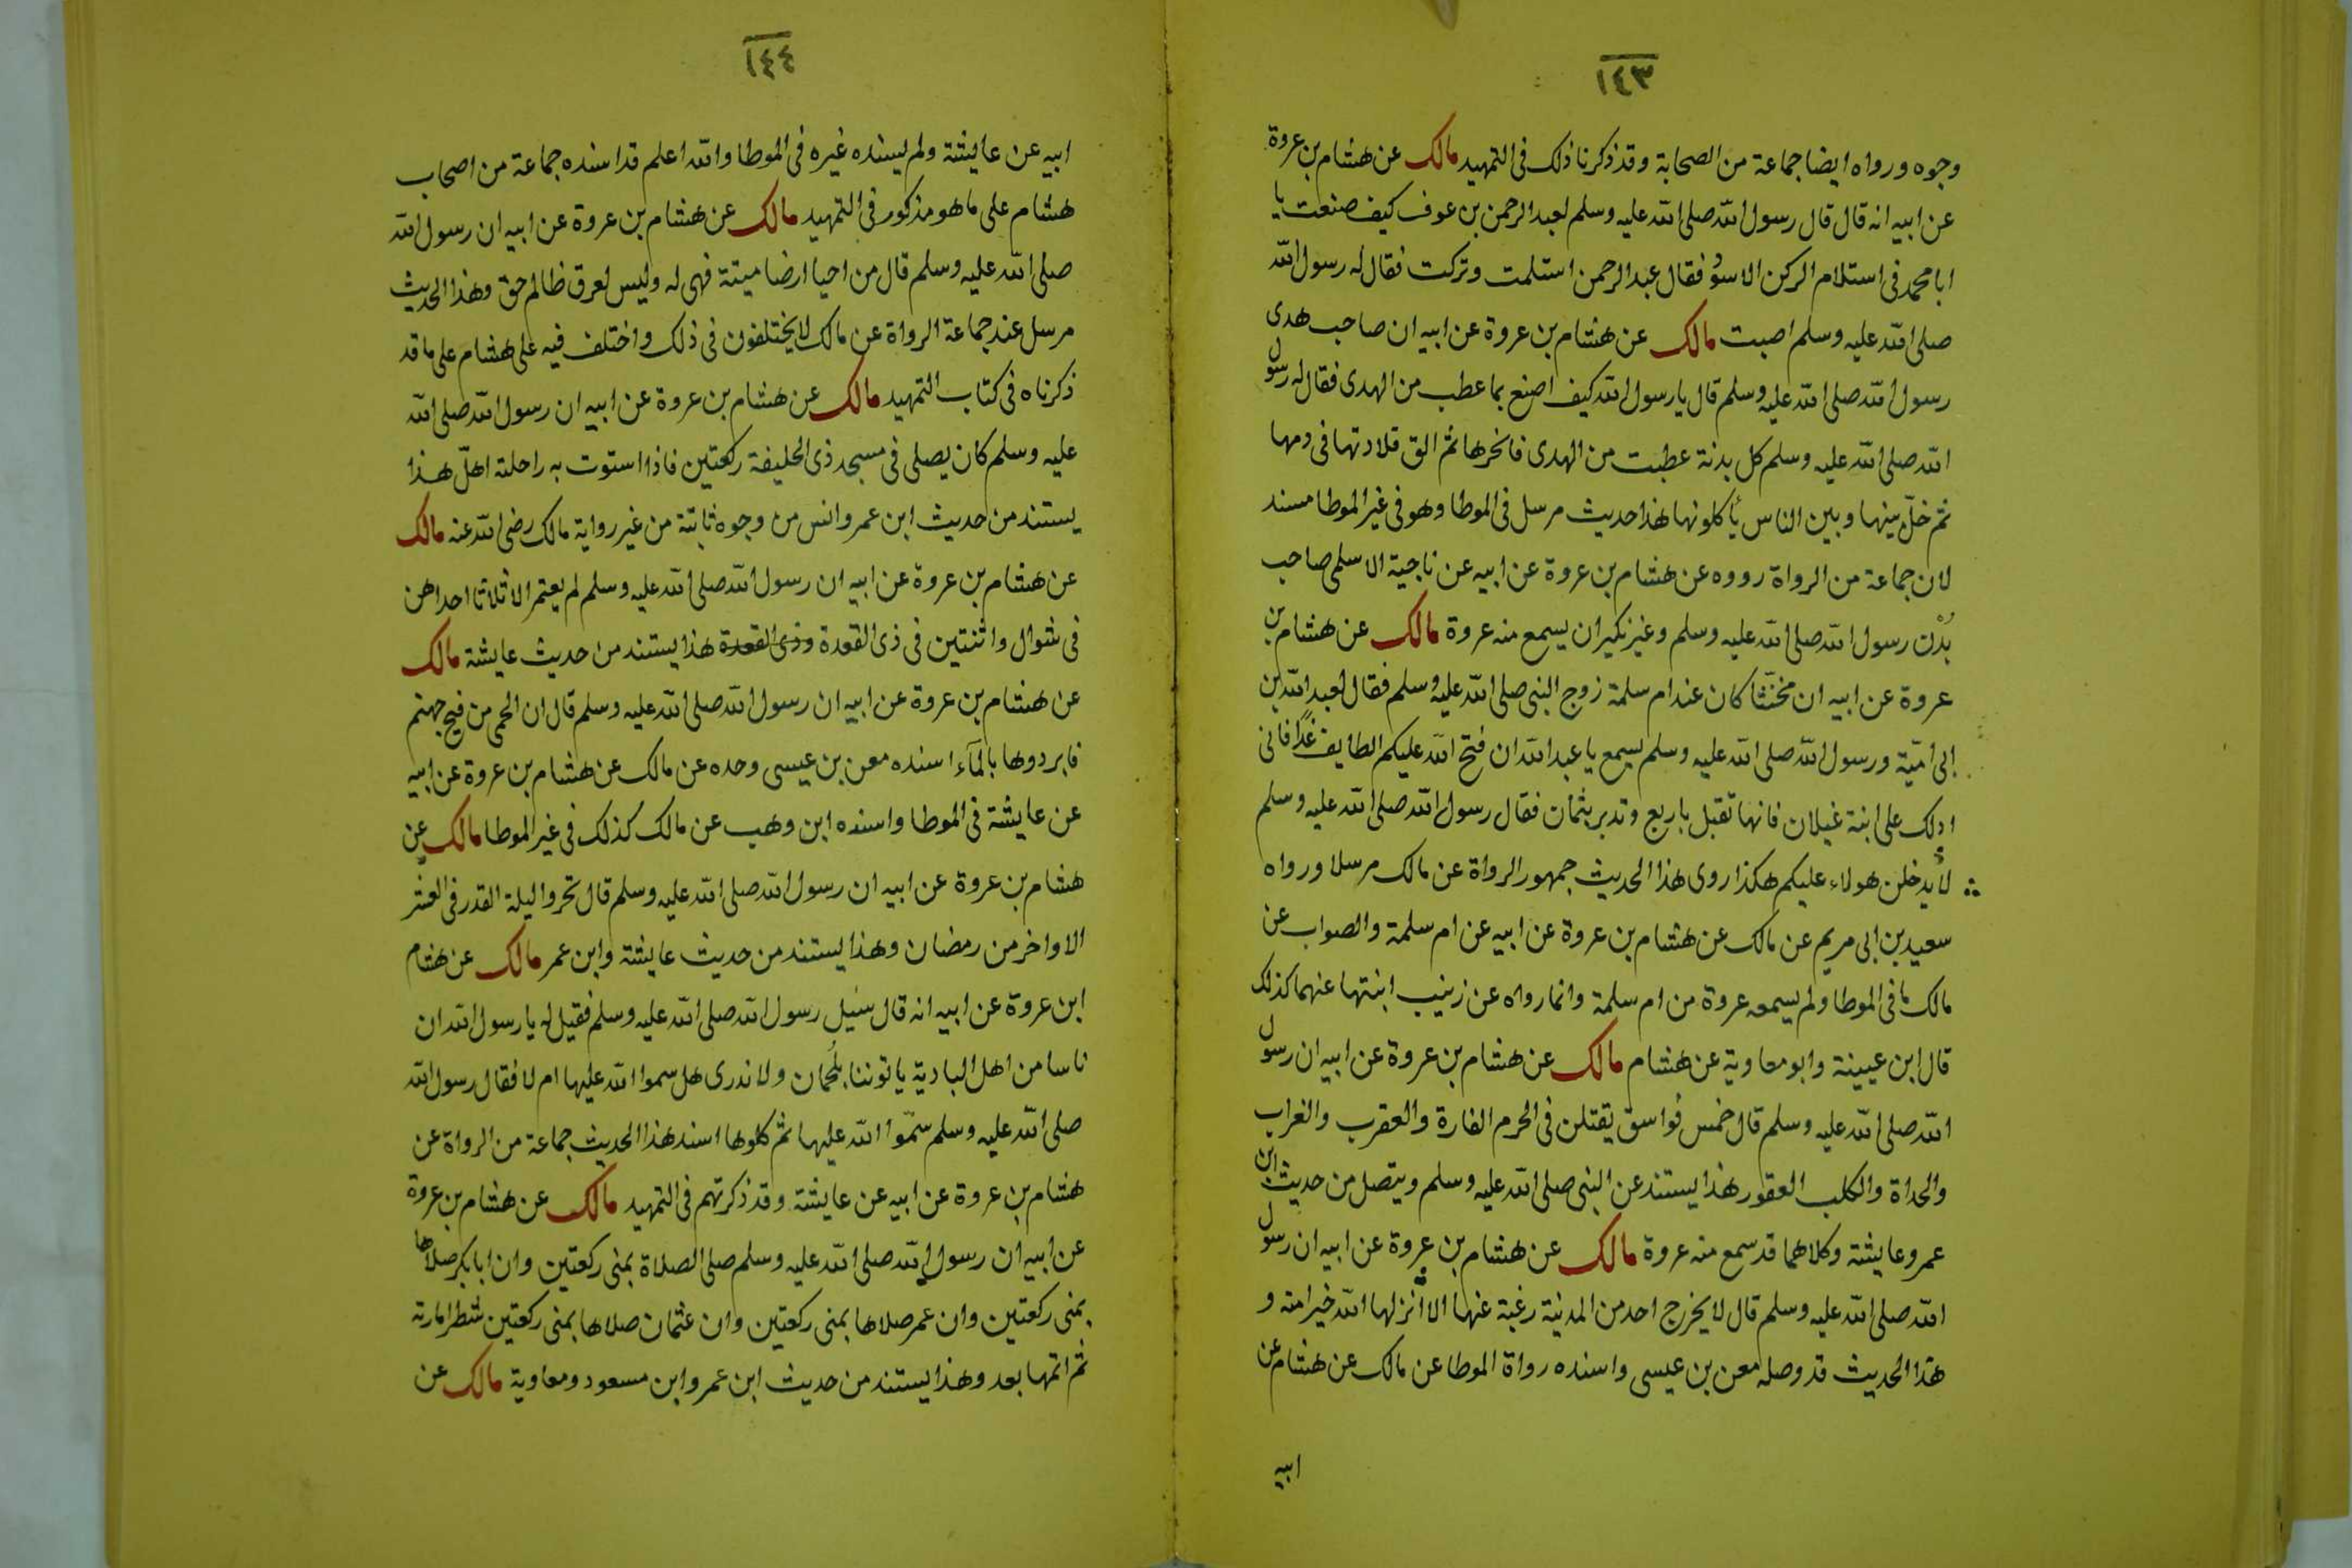 ١٤٣
وجوه ورواه ايضا جماعة من الصحابة وقد ذكرنا ذلك فى التمهيد مالك عن هشام بن عروة
عن ابيه انه قال قال رسول الله صلى الله عليه وسلم لعبد الرحمن بن عوف كيف صنعت يا
ابا محمد فى استلام الركن الاسود فقال عبد الرحمن استلمت وتركت فقال له رسول الله
صلى الله عليه وسلم اصبت مالك عن هشام بن عروة عن ابيه ان صاحب هدى
رسول الله صلى الله عليه وسلم قال يا رسول الله كيف اصنع بما عطب من الهدى فقال له رسول
الله صلى الله عليه وسلم كل بدنة عطبت من الهدى فانحرها ثم الق قلادتها فى دمها
ثم خلّ بينها وبين الناس يأكلونها هذا حديث مرسل فى الموطا وهو فى غير الموطا مسند
لان جماعة من الرواة رووه عن هشام بن عروة عن ابيه عن ناجية الاسلمى صاحب
بُدْن رسول الله صلى الله عليه وسلم وغير نكير ان يسمع منه عروة مالك عن هشام بن
عروة عن ابيه ان مخنّثا كان عند ام سلمة زوج النبى صلى الله عليه وسلم فقال لعبد الله بن
ابى اميّة ورسول الله صلى الله عليه وسلم يسمع يا عبد الله ان فتح الله عليكم الطايف غدًا فانى
ادلك على ابنة غيلان فانها تقبل باربع وتدبر بثمان فقال رسول الله صلى الله عليه وسلم
لا يدخلن هولاء عليكم هكذا روى هذا الحديث جمهور الرواة عن مالك مرسلا ورواه
سعيد بن ابى مريم عن مالك عن هشام بن عروة عن ابيه عن ام سلمة والصواب عن
مالك ما فى الموطا ولم يسمعه عروة من ام سلمة وانما رواه عن زينب ابنتها عنهما كذلك
قال ابن عيينة وابو معاوية عن هشام مالك عن هشام بن عروة عن ابيه ان رسول
الله صلى الله عليه وسلم قال خمس فواسق يقتلن فى الحرم الفارة والعقرب والغراب
والحداة والكلب العقور هذا يستند عن النبى صلى الله عليه وسلم ويتصل من حديث ابن
عمر وعايشة وكلاهما قد سمع منه عروة مالك عن هشام بن عروة عن ابيه ان رسول
الله صلى الله عليه وسلم قال لا يخرج احد من المدينة رغبة عنها الا انزلها الله خيرا منه و
هذا الحديث قد وصله معن بن عيسى واسنده رواة الموطا عن مالك عن هشام عن
ابيه
١٤٤
ابيه عن عايشة ولم يسنده غيره فى الموطا والله اعلم قد اسنده جماعة من اصحاب
هشام على ما هو مذكور فى التمهيد مالك عن هشام بن عروة عن ابيه ان رسول الله
صلى الله عليه وسلم قال من احيا ارضا ميتة فهى له وليس لعرق ظالم حق وهذا الحديث
مرسل عند جماعة الرواة عن مالك لا يختلفون فى ذلك واختلف فيه على هشام على ما قد
ذكرناه فى كتاب التمهيد مالك عن هشام بن عروة عن ابيه ان رسول الله صلى الله
عليه وسلم كان يصلى فى مسجد ذى الحليفة ركعتين فاذا استوت به راحلته اهلّ هذا
يستند من حديث ابن عمر وانس من وجوه ثابتة من غير رواية مالك رضى الله عنه مالك
عن هشام بن عروة عن ابيه ان رسول الله صلى الله عليه وسلم لم يعتمر الا ثلاثا احداهن
فى شوال واثنتين فى ذى القعدة وذى القعدة هذا يستند من حديث عايشة مالك
عن هشام بن عروة عن ابيه ان رسول الله صلى الله عليه وسلم قال ان الحمى من فيح جهنم
فابردوها بالمآء اسنده معن بن عيسى وحده عن مالك عن هشام بن عروة عن ابيه
عن عايشة فى الموطا واسنده ابن وهب عن مالك كذلك فى غير الموطا مالك عن
هشام بن عروة عن ابيه ان رسول الله صلى الله عليه وسلم قال تحروا ليلة القدر فى العشر
الاواخر من رمضان وهذا يستند من حديث عايشة وابن عمر مالك عن هشام
ابن عروة عن ابيه انه قال سئيل رسول الله صلى الله عليه وسلم فقيل له يا رسول الله ان
ناسا من اهل البادية ياتوننا بلُحمان ولا ندرى هل سموا الله عليها ام لا فقال رسول الله
صلى الله عليه وسلم سمّوا الله عليها ثم كلوها اسند هذا الحديث جماعة من الرواة عن
هشام بن عروة عن ابيه عن عايشة وقد ذكرتهم فى التمهيد مالك عن هشام بن عروة
عن ابيه ان رسول الله صلى الله عليه وسلم صلى الصلاة بمنى ركعتين وان ابا بكر صلاها
بمنى ركعتين وان عمر صلاها بمنى ركعتين وان عثمان صلاها بمنى ركعتين شطر امارته
ثم اتمها بعد وهذا يستند من حديث ابن عمر وابن مسعود ومعاوية مالك عن